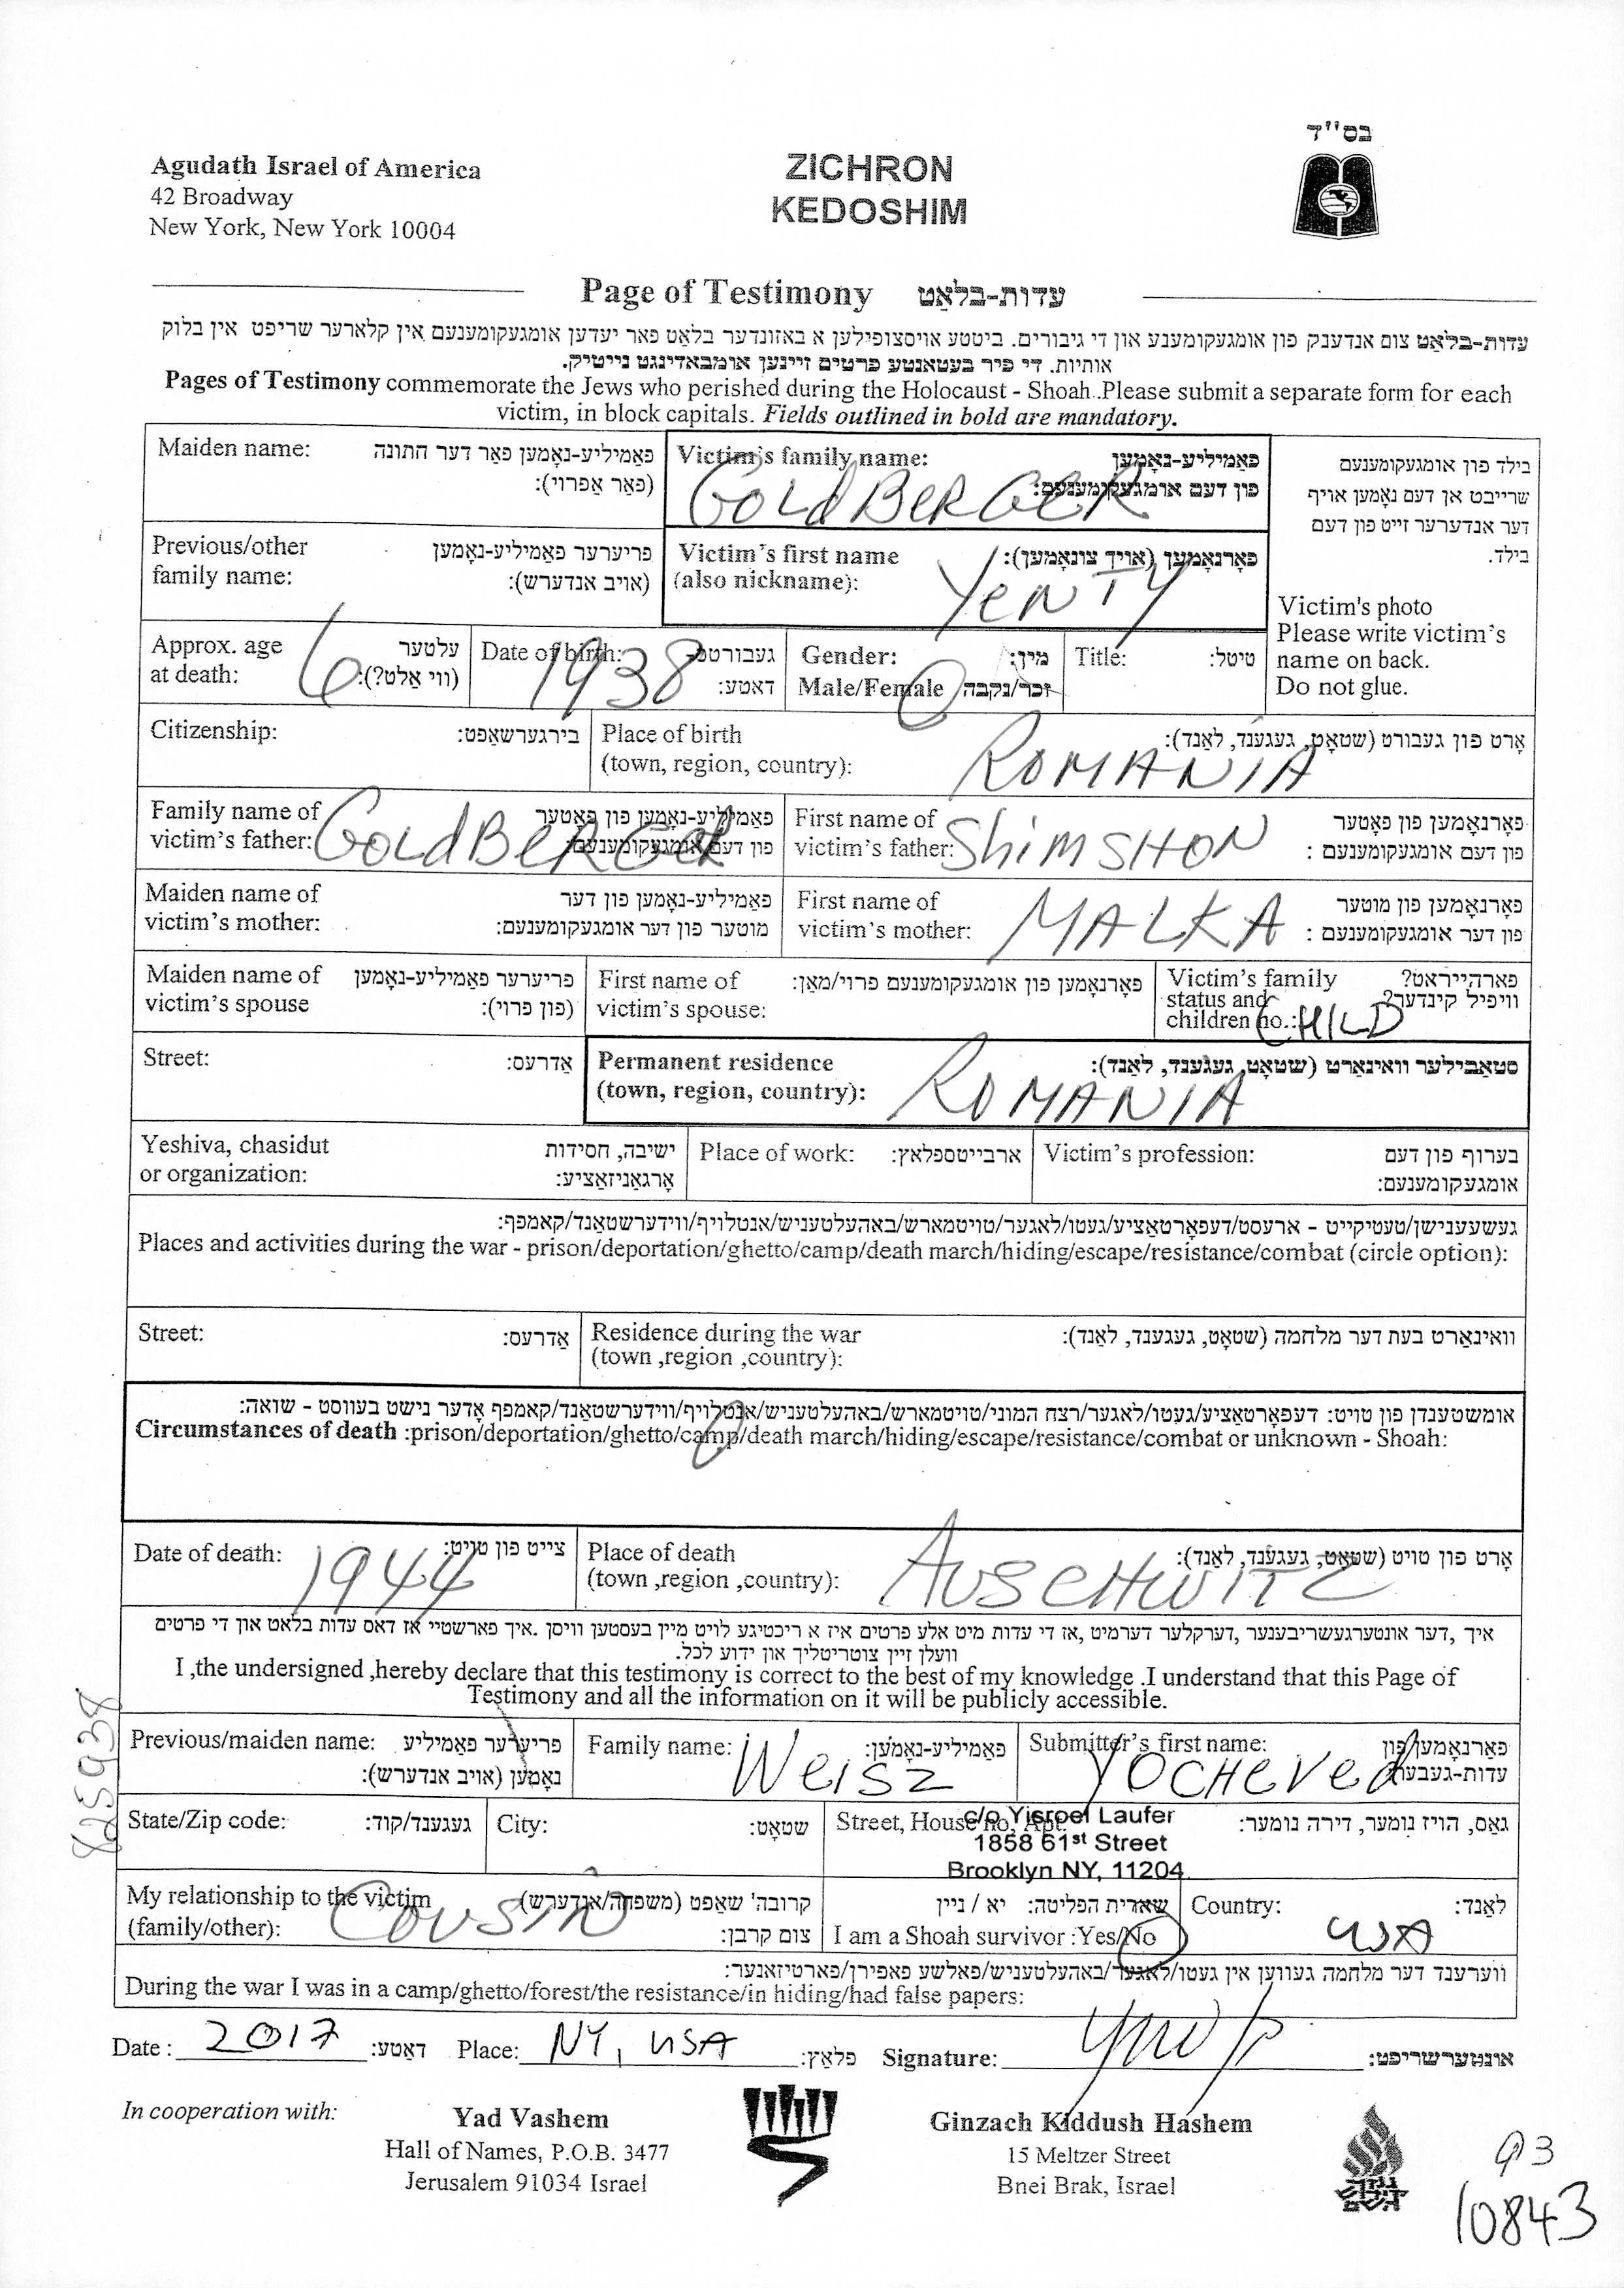 בס"ד
Agudath Israel of America
42 Broadway
New York, New York 10004
ZICHRON
KEDOSHIM
Page of Testimony עדות-בלאַט
עדות-בלאַט צום אנדענק פון אומגעקומענע און די גיבורים. ביטטע אויסצופילען א באזונדער בלאט פאר יעדען אומגעקומענעם אין קלארער שריפט אין בלוק
אותיות. די פיר בעטאנטע פרטים זיינען אומבאדינגט נייטיק.
Pages of Testimony commemorate the Jews who perished during the Holocaust - Shoah. Please submit a separate form for each
victim, in block capitals. Fields outlined in bold are mandatory.
Maiden name: פאַמיליע-נאָמען פאר דער חתונה
(פאר אַפרוי):
Victim's family name: פאַמיליע-נאָמען
פון דעם אומגעקומענעם:
GOLDBERGER
בילד פון אומגעקומענעם
שרייבט אן דעם נאָמען אויף
דער אנדערער זייט פון דעם
בילד.
Victim's photo
Please write victim's
name on back.
Do not glue.
Previous/other פריערער פאַמיליע-נאָמען
family name: (אויב אנדערש):
Victim's first name פאָרנאָמען (אויך צונאָמען):
(also nickname):
YENTY
Approx. age עלטער
at death: (ווי אַלט?):
6
Date of birth: געבורטס-
דאַטע:
1938
Gender: מין:
Male/Female זכר/נקבה
Title: טיטל:
Citizenship: בירגערשאַפט:
Place of birth אָרט פון געבורט (שטאָט, געגענד, לאַנד):
(town, region, country):
ROMANIA
Family name of פאַמיליע-נאָמען פון פאָטער
victim's father: פון דעם אומגעקומענעם:
GOLDBERGER
First name of פאָרנאָמען פון פאָטער
victim's father: פון דעם אומגעקומענעם :
ShimSHON
Maiden name of פאַמיליע-נאָמען פון דער
victim's mother: מוטער פון דער אומגעקומענעם:
First name of פאָרנאָמען פון מוטער
victim's mother: פון דער אומגעקומענעם :
MALKA
Maiden name of פריערער פאַמיליע-נאָמען
victim's spouse (פון פרוי):
First name of פאָרנאָמען פון אומגעקומענעם פרוי/מאַן:
victim's spouse:
Victim's family פארהייראט?
status and וויפיל קינדער?
children no.: CHILD
Street: אַדרעס:
Permanent residence סטאַבילער וואוינאָרט (שטאָט, געגענד, לאַנד):
(town, region, country):
ROMANIA
Yeshiva, chasidut ישיבה, חסידות
or organization: אָרגאַניזאַציע:
Place of work: ארבייטספלאץ:
Victim's profession: בערוף פון דעם
אומגעקומענעם:
געשעענישן/טעטיקייט - ארעסט/דעפאָרטאַציע/געטו/לאגער/טויטמארש/באהעלטעניש/אנטלויף/ווידערשטאַנד/קאמפף:
Places and activities during the war - prison/deportation/ghetto/camp/death march/hiding/escape/resistance/combat (circle option):
Street: אַדרעס:
Residence during the war וואוינאָרט בעת דער מלחמה (שטאָט, געגענד, לאַנד):
(town ,region ,country):
אומשטענדן פון טויט: דעפאָרטאַציע/געטו/לאגער/רצח המוני/טויטמארש/באהעלטעניש/אנטלויף/ווידערשטאנד/קאמפף אָדער נישט בעוווסט - שואה:
Circumstances of death :prison/deportation/ghetto/camp/death march/hiding/escape/resistance/combat or unknown - Shoah:
Date of death: צייט פון טויט:
1944
Place of death אָרט פון טויט (שטאָט, געגענד, לאַנד):
(town ,region ,country):
AUSCHWITZ
איך ,דער אונטערגעשריבענער ,דערקלער דערמיט ,אז די עדות מיט אלע פרטים איז א ריכטיגע לויט מיין בעסטען וויסן .איך פארשטיי אז דאס עדות בלאט און די פרטים
וועלן זיין צוטריטליך און ידוע לכל.
I ,the undersigned ,hereby declare that this testimony is correct to the best of my knowledge .I understand that this Page of
Testimony and all the information on it will be publicly accessible.
825938
Previous/maiden name: פריערער פאַמיליע
נאָמען (אויב אנדערש):
Family name: פאַמיליע-נאָמען:
Weisz
Submitter's first name: פאָרנאָמען פון
עדות-געבער:
YOCHEVED
State/Zip code: געגענד/קוד:
City: שטאָט:
Street, House no, Apt: גאַס, הויז נומער, דירה נומער:
c/o Yisroel Laufer
1858 61st Street
Brooklyn NY, 11204
My relationship to the victim קרובה' שאַפט (משפחה/אנדערש)
(family/other): צום קרבן:
COUSIN
שארית הפליטה: יא / ניין
I am a Shoah survivor :Yes/No
Country: לאַנד:
USA
ווערענד דער מלחמה געווען אין געטו/לאגער/באהעלטעניש/פאלשע פאפירן/פארטיזאנער:
During the war I was in a camp/ghetto/forest/the resistance/in hiding/had false papers:
Date : 2017 דאַטע: Place: NY, USA פלאַץ: Signature: אונטערשריפט:
In cooperation with:
Yad Vashem
Hall of Names, P.O.B. 3477
Jerusalem 91034 Israel
Ginzach Kiddush Hashem
15 Meltzer Street
Bnei Brak, Israel
93
10843